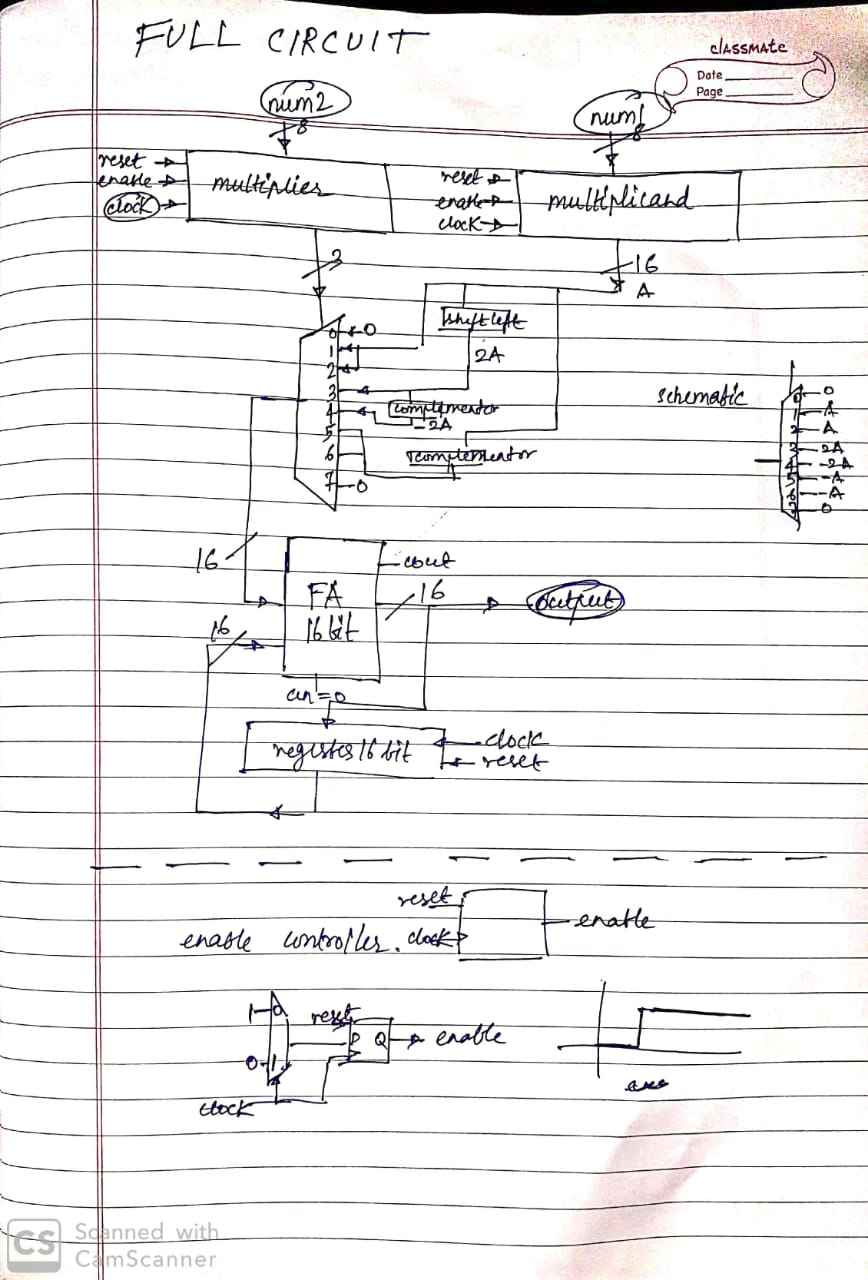 FULL CIRCUIT
classmate
Date
Page
num2
8
num1
8
reset
enable
clock
multiplier
reset
enable
clock
multiplicand
3
16
A
shift left
2A
0
0
1
2
3
4
5
6
7
0
complementor
-2A
complementor
schematic
0
1
2
3
4
5
6
7
0
A
A
2A
-2A
-A
-A
0
16
FA
16 bit
cout
16
output
16
cin=0
register 16 bit
clock
reset
reset
enable controller. clock
enable
1
0
0
1
reset
D Q
enable
clock
CS
Scanned with
CamScanner